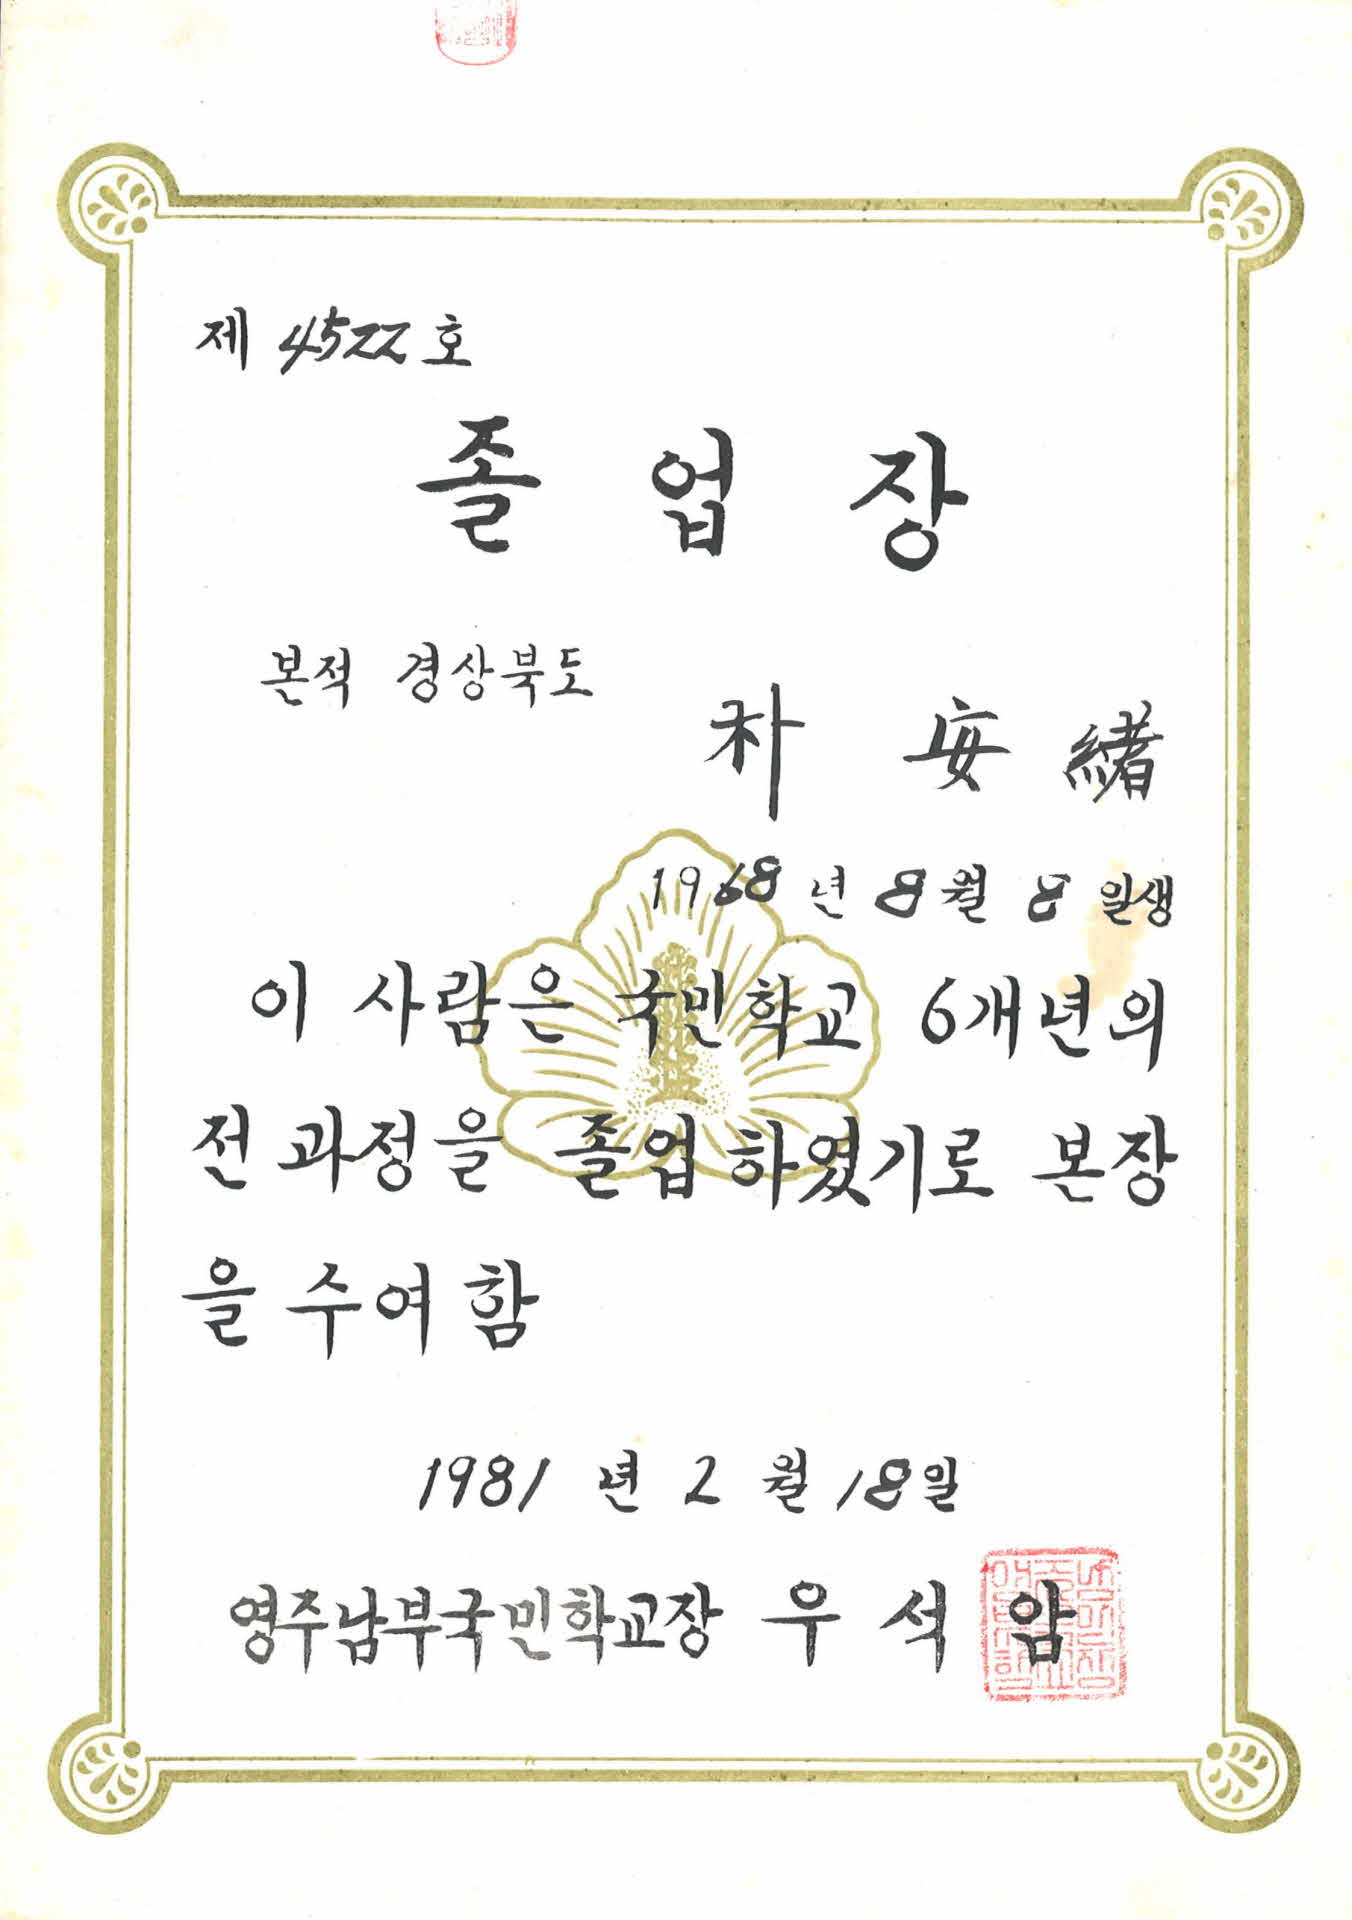 제 4522 호
졸 업 장
본적 경상북도
朴 安緖
1968 년 8 월 8 일생
이 사람은 국민학교 6개년의
전 과정을 졸업하였기로 본장
을 수여함
1981 년 2 월 18 일
영주남부국민학교장 우 석 암